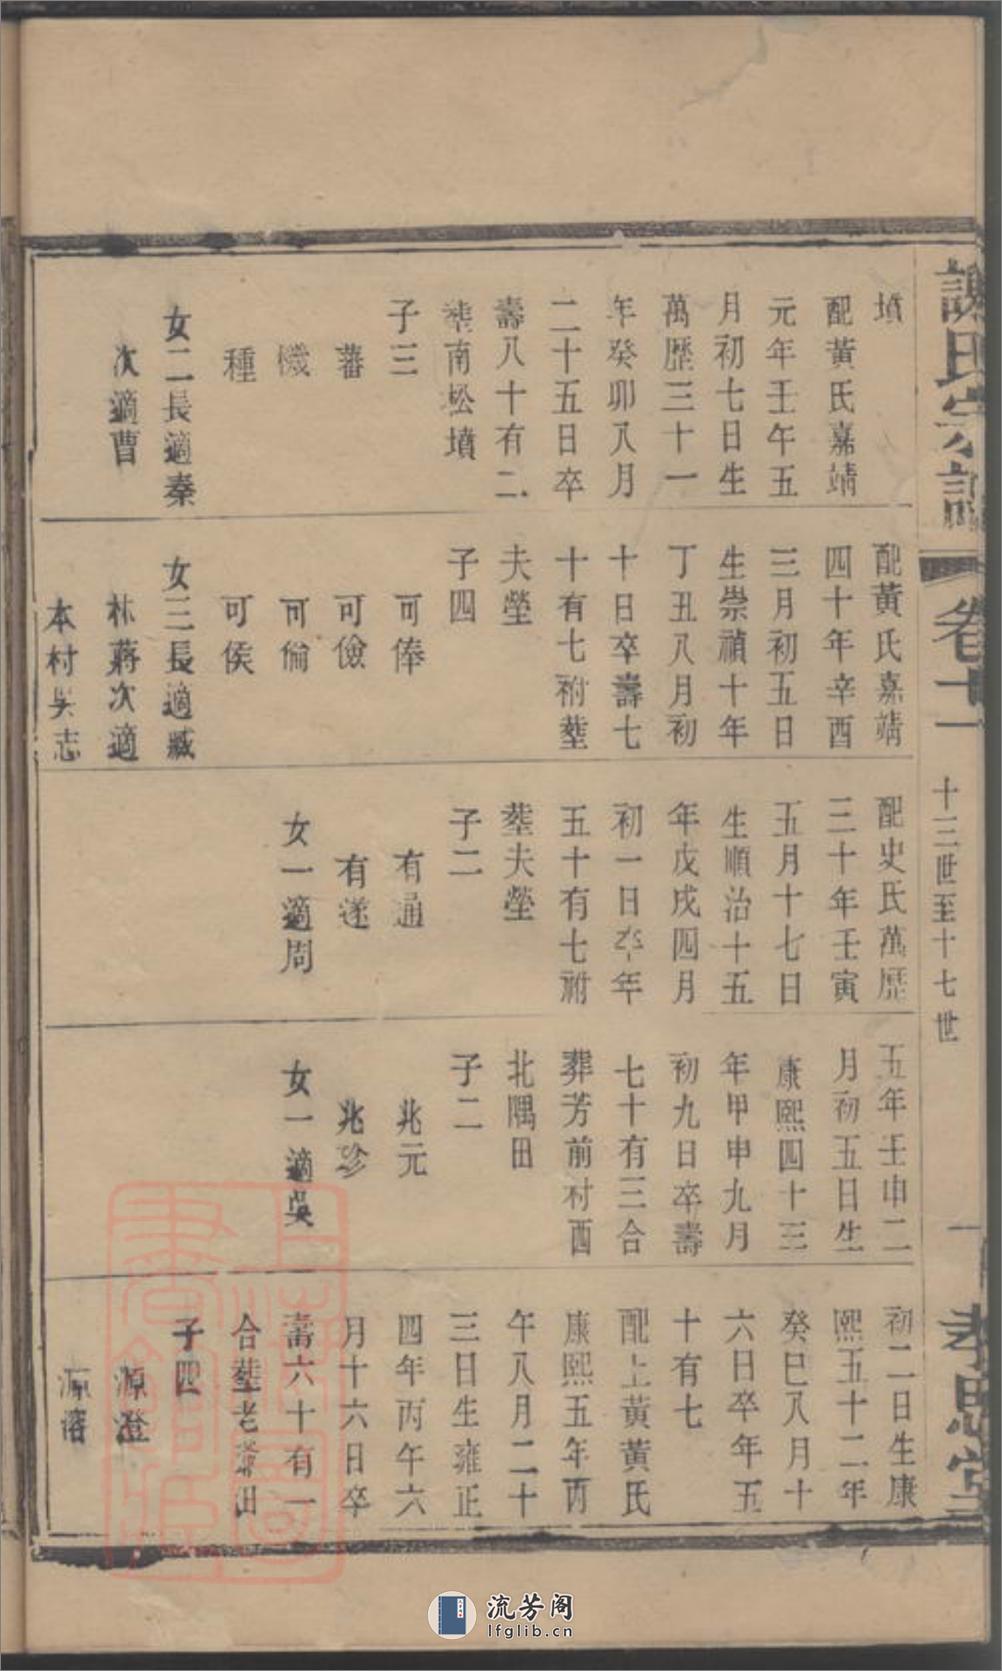 謝氏宗譜
卷十一
十三世至十七世
一
孝思堂
墳
配黃氏嘉靖
元年壬午五
月初七日生
萬歷三十一
年癸卯八月
二十五日卒
壽八十有二
塟南松墳
子三
蕃
機
種
女二長適秦
次適曹
配黃氏嘉靖
四十年辛酉
三月初五日
生崇禎十年
丁丑八月初
十日卒壽七
十有七祔塟
夫塋
子四
可俸
可儉
可倫
可侯
女三長適臧
林蔣次適
本村吳志
配史氏萬歷
三十年壬寅
五月十七日
生順治十五
年戊戌四月
初一日卒年
五十有七祔
塟夫塋
子二
有通
有遂
女一適周
五年壬申二
月初五日生
康熙四十三
年甲申九月
初九日卒壽
七十有三合
葬芳前村西
北隅田
子二
兆元
兆珍
女一適吳
初二日生康
熙五十二年
癸巳八月十
六日卒年五
十有七
配上黃黃氏
康熙五年丙
午八月二十
三日生雍正
四年丙午六
月十六日卒
壽六十有一
合塟老 田
子四
源澄
源溶
上海圖書館藏
流芳阁
lfglib.cn